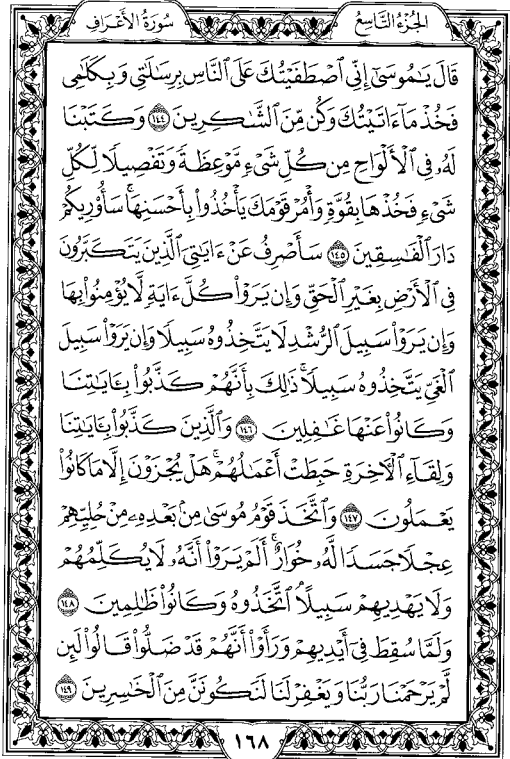 الجزء التاسع
سورة الأعراف
قَالَ يَٰمُوسَىٰٓ إِنِّي ٱصۡطَفَيۡتُكَ عَلَى ٱلنَّاسِ بِرِسَٰلَٰتِي وَبِكَلَٰمِي
فَخُذۡ مَآ ءَاتَيۡتُكَ وَكُن مِّنَ ٱلشَّٰكِرِينَ ١٤٤ وَكَتَبۡنَا
لَهُۥ فِي ٱلۡأَلۡوَاحِ مِن كُلِّ شَيۡءٖ مَّوۡعِظَةٗ وَتَفۡصِيلٗا لِّكُلِّ
شَيۡءٖ فَخُذۡهَا بِقُوَّةٖ وَأۡمُرۡ قَوۡمَكَ يَأۡخُذُواْ بِأَحۡسَنِهَاۚ سَأُوْرِيكُمۡ
دَارَ ٱلۡفَٰسِقِينَ ١٤٥ سَأَصۡرِفُ عَنۡ ءَايَٰتِيَ ٱلَّذِينَ يَتَكَبَّرُونَ
فِي ٱلۡأَرۡضِ بِغَيۡرِ ٱلۡحَقِّ وَإِن يَرَوۡاْ كُلَّ ءَايَةٖ لَّا يُؤۡمِنُواْ بِهَا
وَإِن يَرَوۡاْ سَبِيلَ ٱلرُّشۡدِ لَا يَتَّخِذُوهُ سَبِيلٗا وَإِن يَرَوۡاْ سَبِيلَ
ٱلۡغَيِّ يَتَّخِذُوهُ سَبِيلٗاۚ ذَٰلِكَ بِأَنَّهُمۡ كَذَّبُواْ بِـَٔايَٰتِنَا
وَكَانُواْ عَنۡهَا غَٰفِلِينَ ١٤٦ وَٱلَّذِينَ كَذَّبُواْ بِـَٔايَٰتِنَا
وَلِقَآءِ ٱلۡأٓخِرَةِ حَبِطَتۡ أَعۡمَٰلُهُمۡۚ هَلۡ يُجۡزَوۡنَ إِلَّا مَا كَانُواْ
يَعۡمَلُونَ ١٤٧ وَٱتَّخَذَ قَوۡمُ مُوسَىٰ مِنۢ بَعۡدِهِۦ مِنۡ حُلِيِّهِمۡ
عِجۡلٗا جَسَدٗا لَّهُۥ خُوَارٌۚ أَلَمۡ يَرَوۡاْ أَنَّهُۥ لَا يُكَلِّمُهُمۡ
وَلَا يَهۡدِيهِمۡ سَبِيلًاۘ ٱتَّخَذُوهُ وَكَانُواْ ظَٰلِمِينَ ١٤٨
وَلَمَّا سُقِطَ فِيٓ أَيۡدِيهِمۡ وَرَأَوۡاْ أَنَّهُمۡ قَدۡ ضَلُّواْ قَالُواْ لَئِن
لَّمۡ يَرۡحَمۡنَا رَبُّنَا وَيَغۡفِرۡ لَنَا لَنَكُونَنَّ مِنَ ٱلۡخَٰسِرِينَ ١٤٩
١٦٨